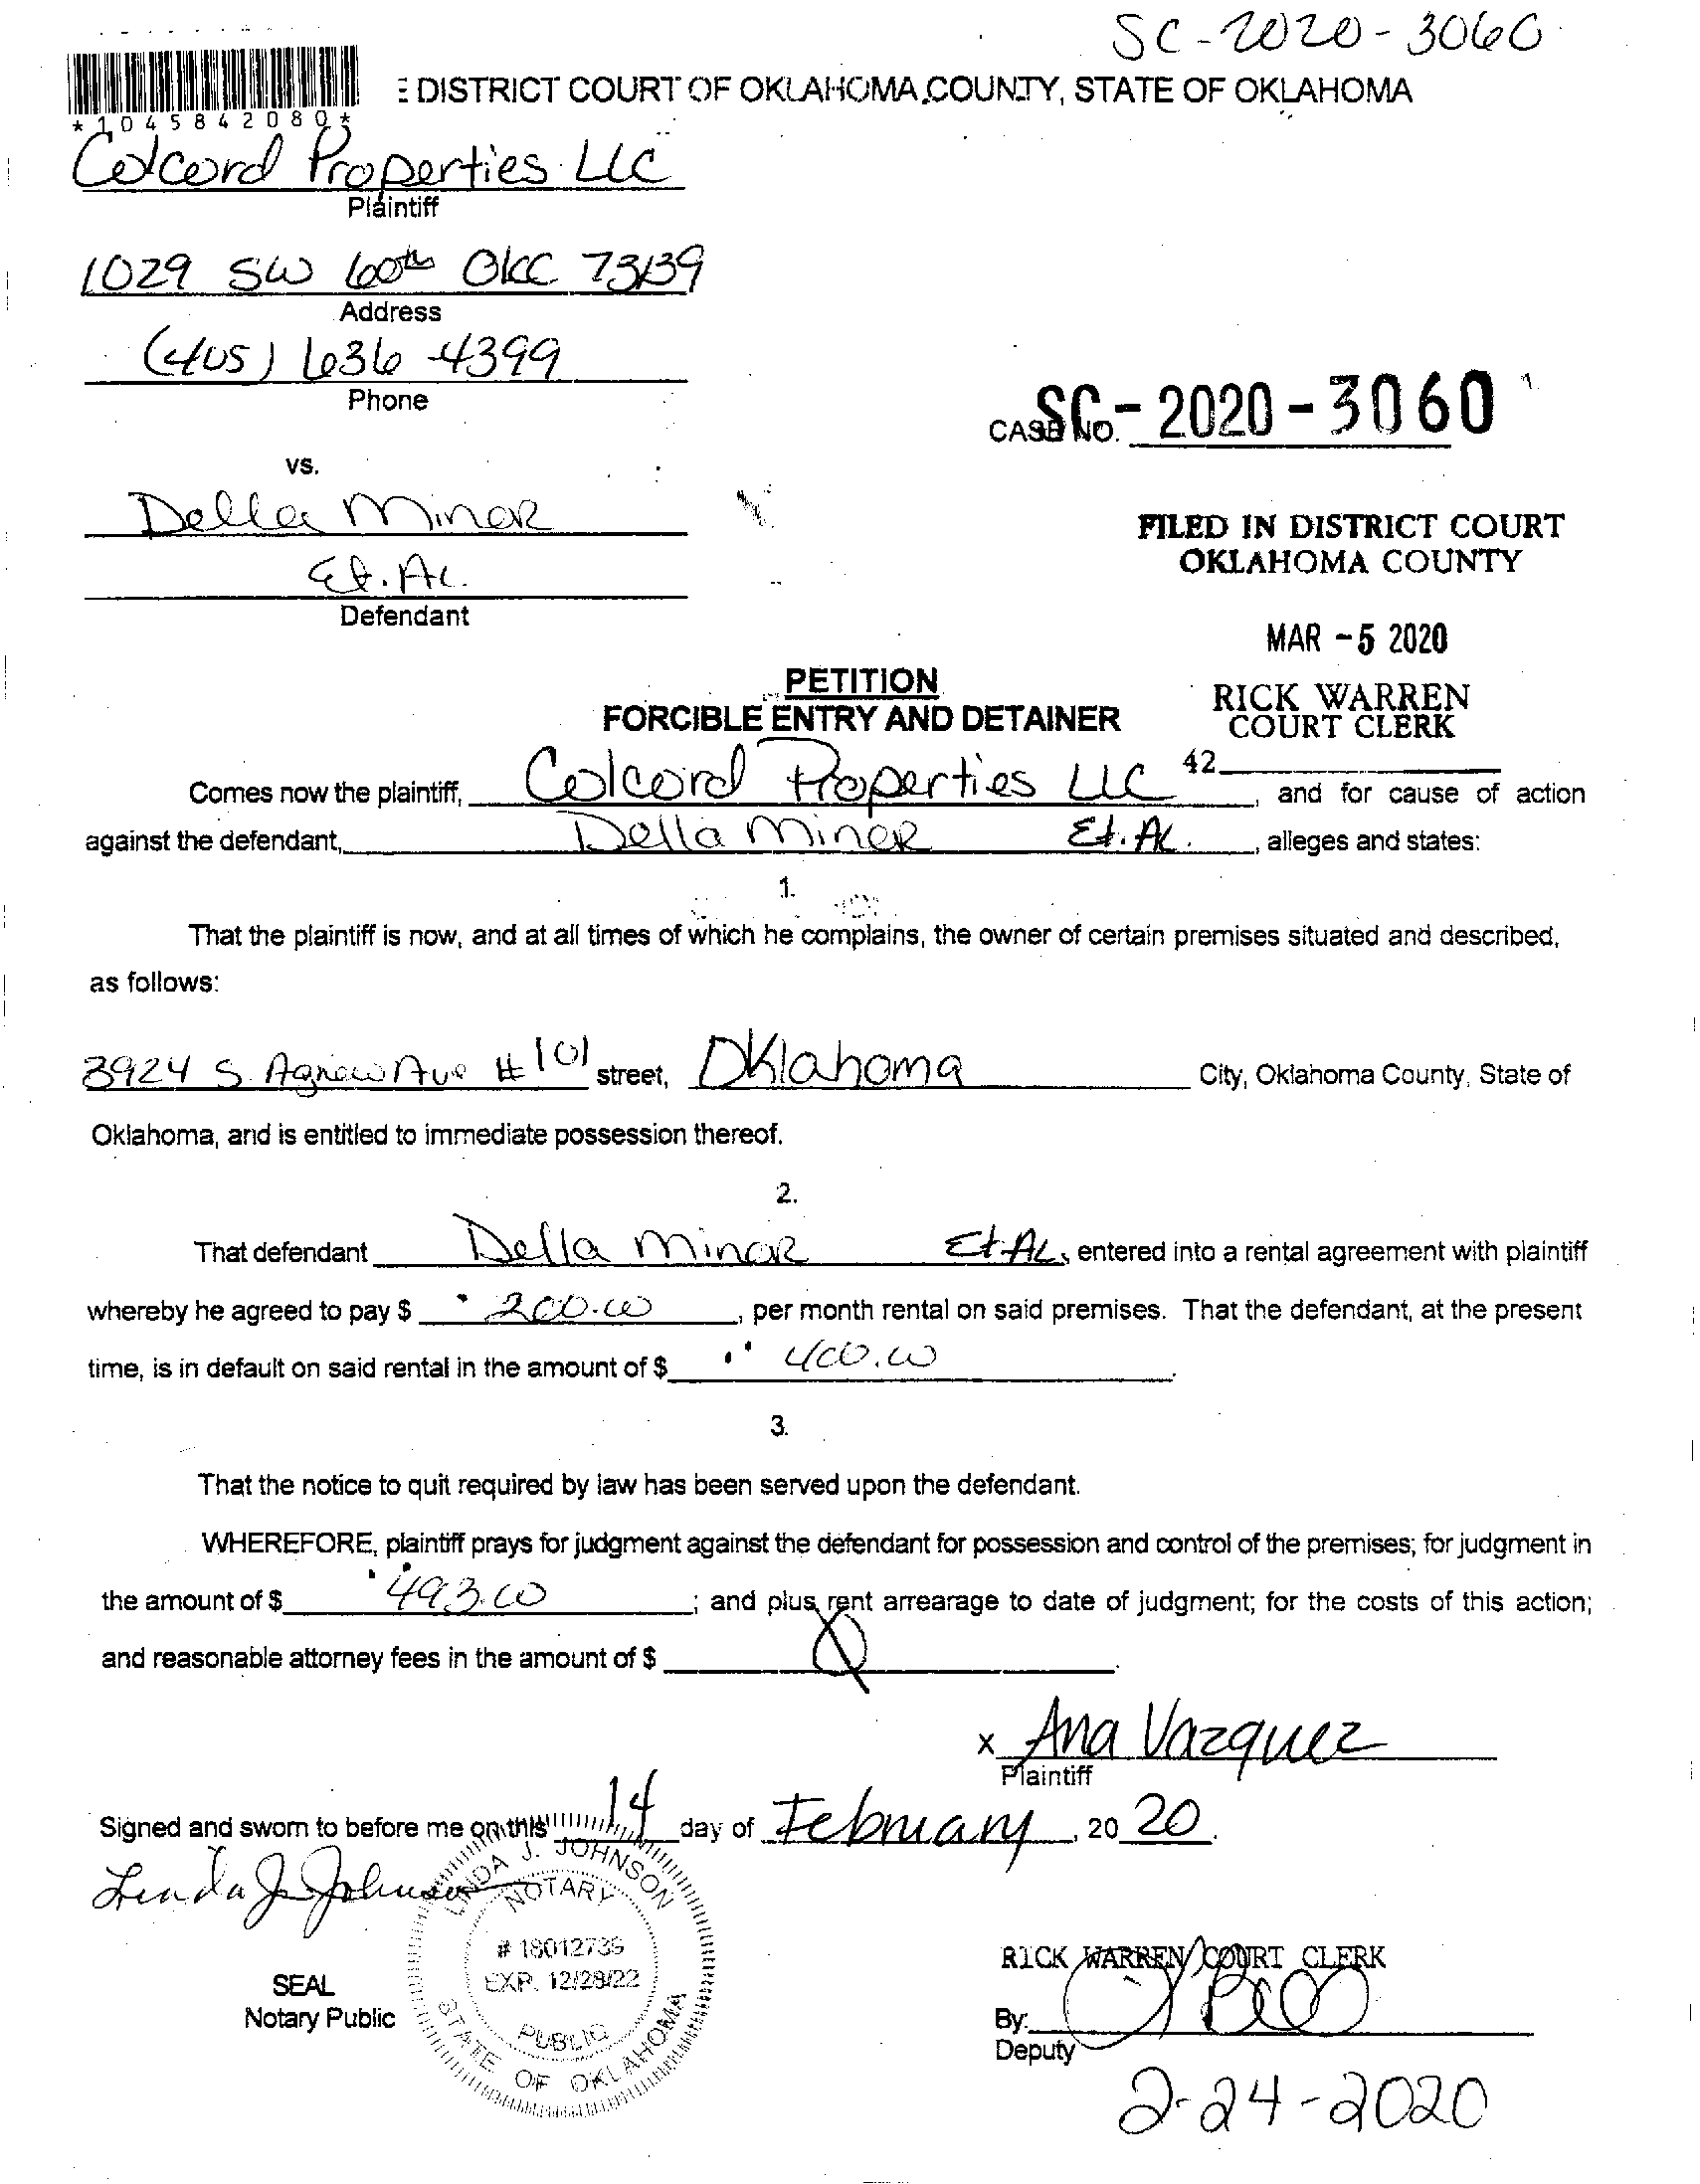 SC-2020-3060
DISTRICT COURT OF OKLAHOMA COUNTY, STATE OF OKLAHOMA
*1045842080*
Colcord Properties LLC
Plaintiff
1029 SW 60th OKC 73139
Address
(405) 636-4399
Phone
CASE NO. SC-2020-3060
vs.
Della Minor
Et. Al.
Defendant
FILED IN DISTRICT COURT
OKLAHOMA COUNTY
MAR -5 2020
RICK WARREN
COURT CLERK
42
PETITION
FORCIBLE ENTRY AND DETAINER
Comes now the plaintiff, Colcord Properties LLC, and for cause of action
against the defendant, Della Minor Et. Al., alleges and states:
1.
That the plaintiff is now, and at all times of which he complains, the owner of certain premises situated and described,
as follows:
3924 S. Agnew Ave #101 street, Oklahoma City, Oklahoma County, State of
Oklahoma, and is entitled to immediate possession thereof.
2.
That defendant Della Minor Et AL, entered into a rental agreement with plaintiff
whereby he agreed to pay $ 200.00, per month rental on said premises. That the defendant, at the present
time, is in default on said rental in the amount of $ 400.00.
3.
That the notice to quit required by law has been served upon the defendant.
WHEREFORE, plaintiff prays for judgment against the defendant for possession and control of the premises; for judgment in
the amount of $ 493.00; and plus rent arrearage to date of judgment; for the costs of this action;
and reasonable attorney fees in the amount of $
x Ana Vazquez
Plaintiff
Signed and sworn to before me on this 14 day of February, 20 20.
Linda J Johnson
LINDA J. JOHNSON
NOTARY
# 18012735
EXP. 12/28/22
PUBLIC
STATE OF OKLAHOMA
SEAL
Notary Public
RICK WARREN COURT CLERK
By:
Deputy
2-24-2020